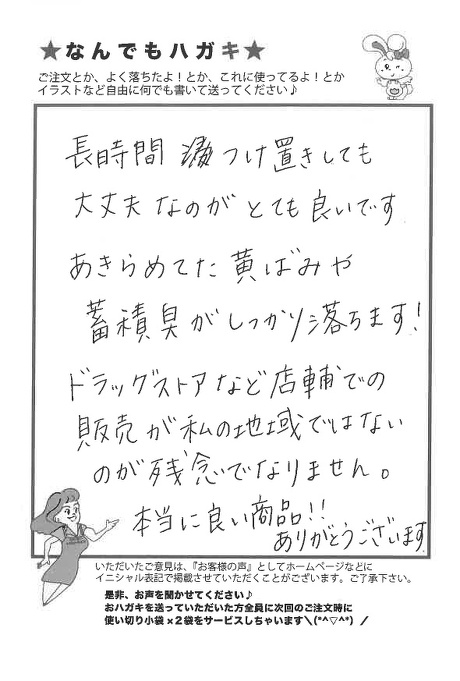 ★なんでもハガキ★
ご注文とか、よく落ちたよ！とか、これに使ってるよ！とか
イラストなど自由に何でも書いて送ってください♪
長時間 つけ置きしても
大丈夫なのがとても良いです
あきらめてた黄ばみや
蓄積臭がしっかり落ちます！
ドラッグストアなど店舗での
販売が私の地域ではない
のが残念でなりません。
本当に良い商品!!
ありがとうございます
いただいたご意見は、『お客様の声』としてホームページなどに
イニシャル表記で掲載させていただくことがございます。ご了承下さい。
是非、お声を聞かせてください♪
おハガキを送っていただいた方全員に次回のご注文時に
使い切り小袋×2袋をサービスしちゃいます＼(*^▽^*)／